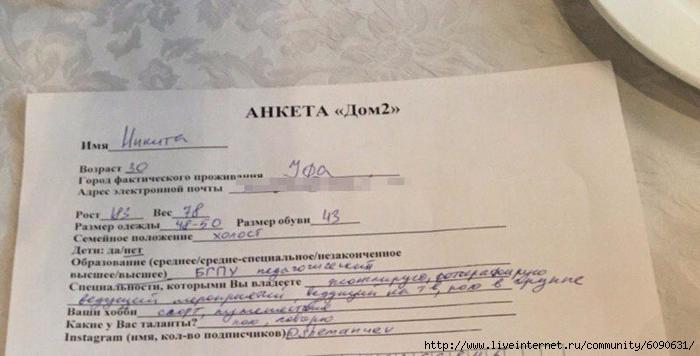 АНКЕТА «Дом2»
Имя Никита
Возраст 30
Город фактического проживания Уфа
Адрес электронной почты
Рост 183 Вес 78
Размер одежды 48-50 Размер обуви 43
Семейное положение холост
Дети: да/нет
Образование (среднее/средне-специальное/незаконченное
высшее/высшее) БГПУ педагогический
Специальности, которыми Вы владеете фотографирую
ведущий мероприятий, ведущий на тв, пою в группе
Ваши хобби спорт, путешествия
Какие у Вас таланты? пою, говорю
Instagram (имя, кол-во подписчиков) @shemanuev
http://www.liveinternet.ru/community/6090631/